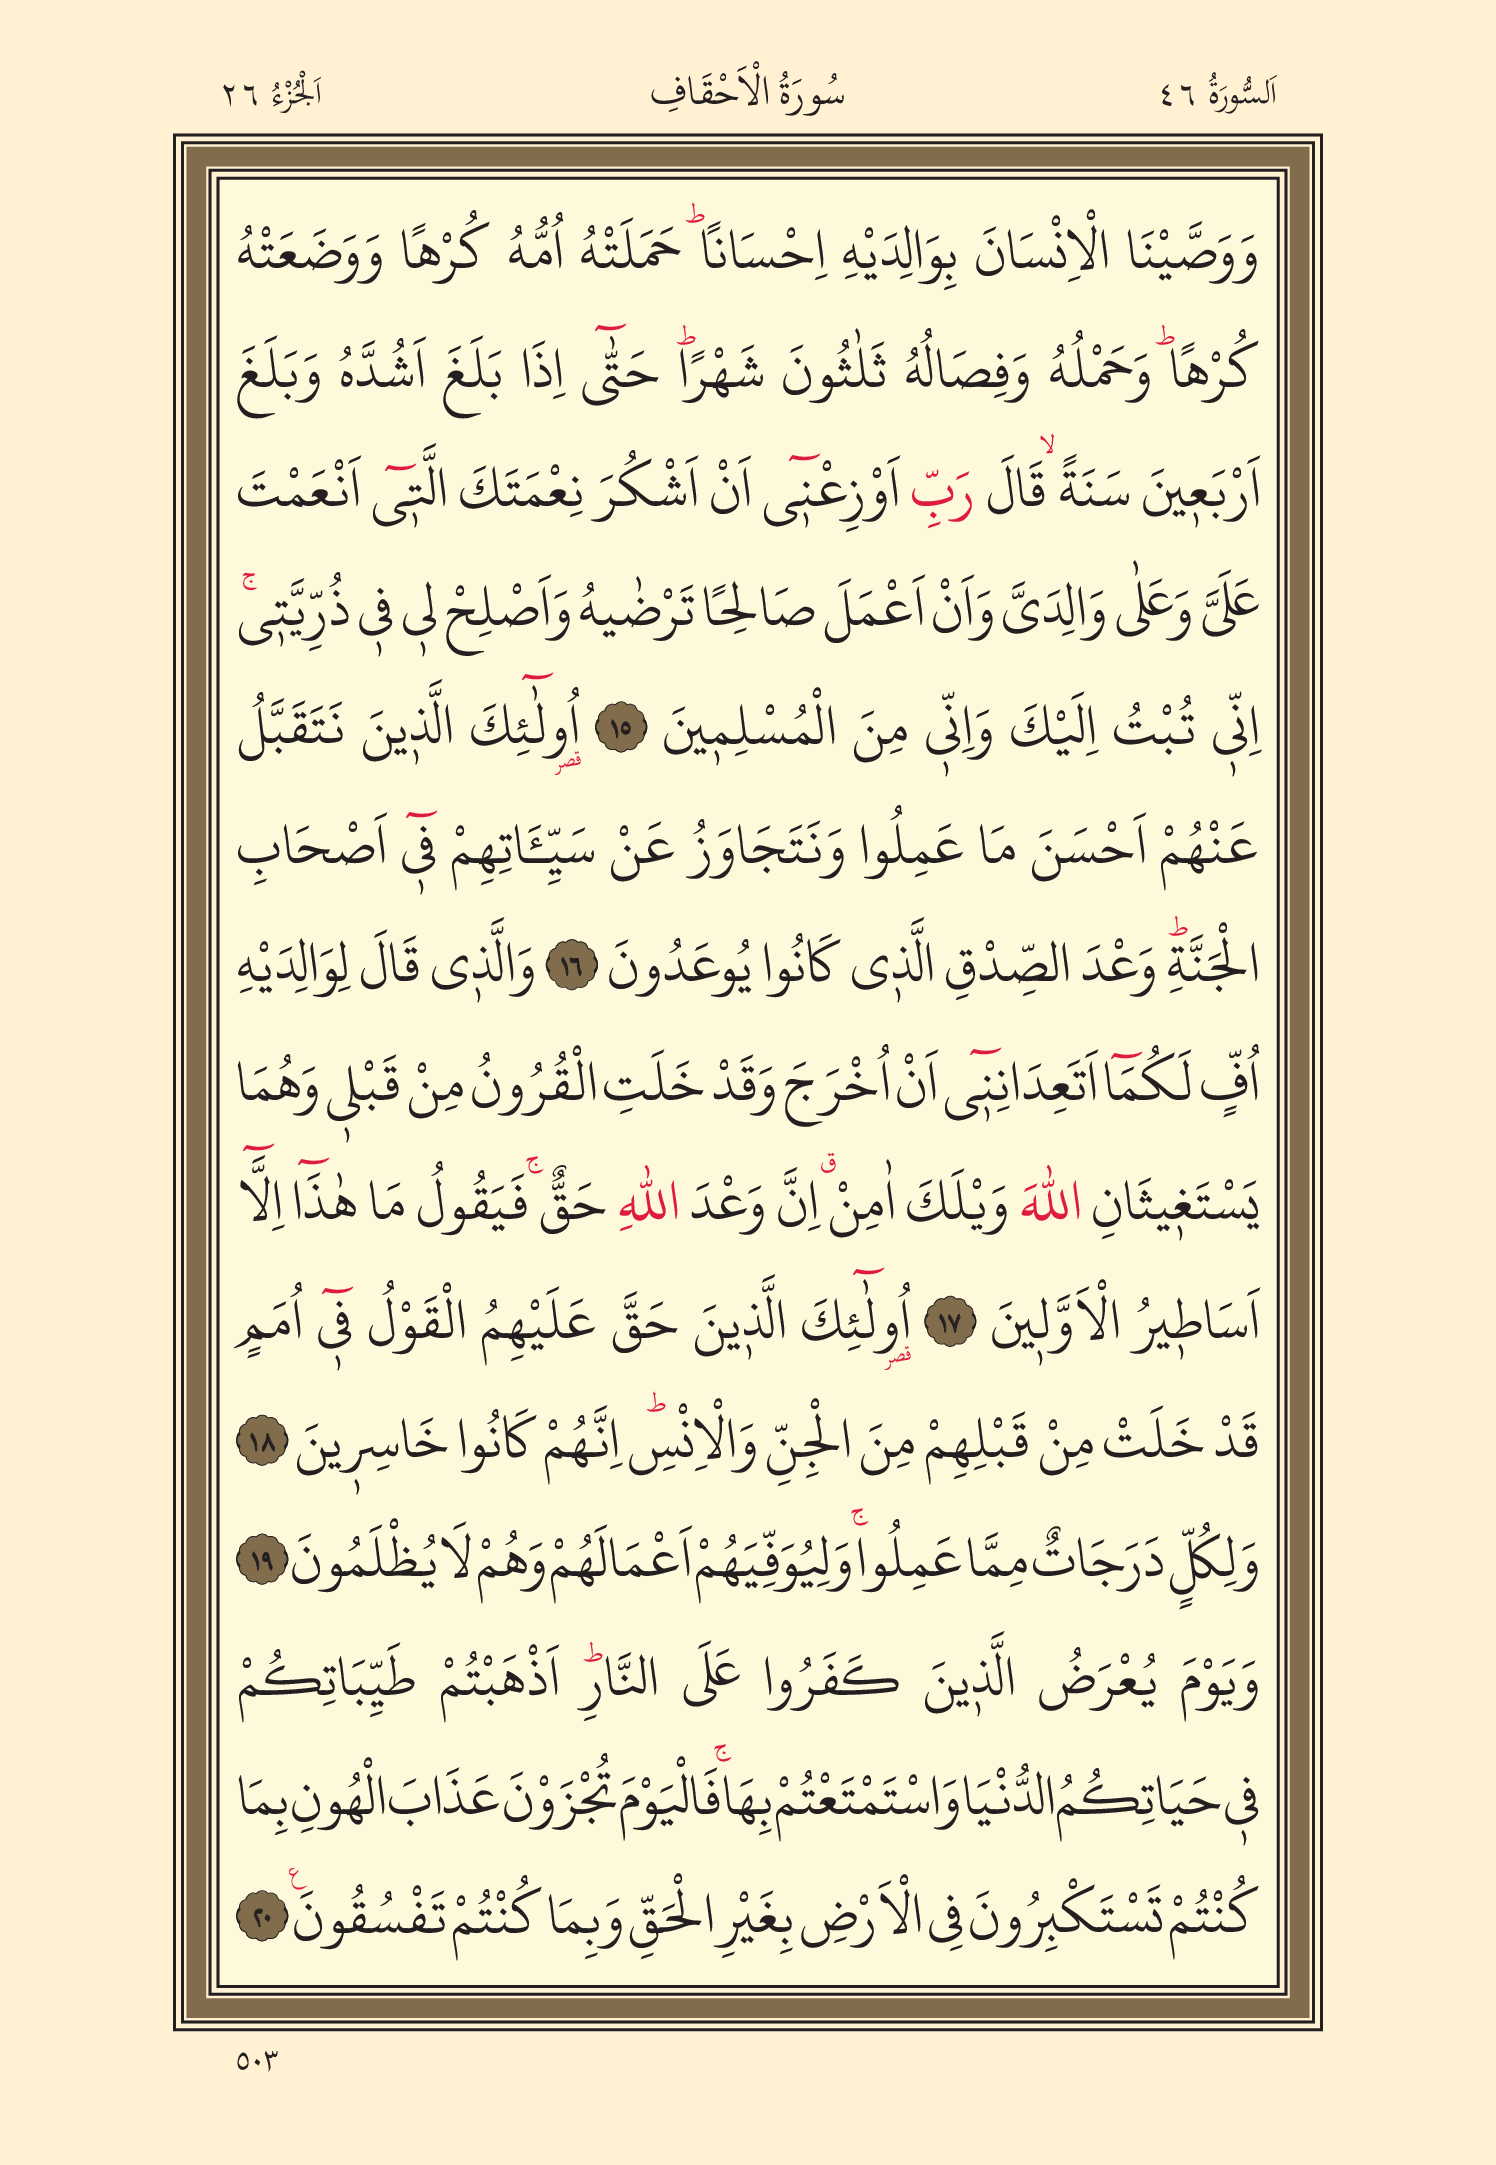 اَلسُّورَةُ ٤٦ سُورَةُ الْاَحْقَافِ اَلْجُزْءُ ٢٦
وَوَصَّيْنَا الْاِنْسَانَ بِوَالِدَيْهِ اِحْسَانًاۜ حَمَلَتْهُ اُمُّهُ كُرْهًا وَوَضَعَتْهُ
كُرْهًاۜ وَحَمْلُهُ وَفِصَالُهُ ثَلٰثُونَ شَهْرًاۜ حَتّٰٓى اِذَا بَلَغَ اَشُدَّهُ وَبَلَغَ
اَرْبَعٖينَ سَنَةًۙ قَالَ رَبِّ اَوْزِعْنٖٓى اَنْ اَشْكُرَ نِعْمَتَكَ الَّتٖٓى اَنْعَمْتَ
عَلَىَّ وَعَلٰى وَالِدَىَّ وَاَنْ اَعْمَلَ صَالِحًا تَرْضٰيهُ وَاَصْلِحْ لٖى فٖى ذُرِّيَّتٖىۚ
اِنّٖى تُبْتُ اِلَيْكَ وَاِنّٖى مِنَ الْمُسْلِمٖينَ ١٥ اُو۬لٰٓئِكَ الَّذٖينَ نَتَقَبَّلُ
قصر
عَنْهُمْ اَحْسَنَ مَا عَمِلُوا وَنَتَجَاوَزُ عَنْ سَيِّـَٔاتِهِمْ فٖٓى اَصْحَابِ
الْجَنَّةِۜ وَعْدَ الصِّدْقِ الَّذٖى كَانُوا يُوعَدُونَ ١٦ وَالَّذٖى قَالَ لِوَالِدَيْهِ
اُفٍّ لَكُمَٓا اَتَعِدَانِنٖٓى اَنْ اُخْرَجَ وَقَدْ خَلَتِ الْقُرُونُ مِنْ قَبْلٖى وَهُمَا
يَسْتَغٖيثَانِ اللّٰهَ وَيْلَكَ اٰمِنْۗ اِنَّ وَعْدَ اللّٰهِ حَقٌّۚ فَيَقُولُ مَا هٰذَٓا اِلَّٓا
اَسَاطٖيرُ الْاَوَّلٖينَ ١٧ اُو۬لٰٓئِكَ الَّذٖينَ حَقَّ عَلَيْهِمُ الْقَوْلُ فٖٓى اُمَمٍ
قصر
قَدْ خَلَتْ مِنْ قَبْلِهِمْ مِنَ الْجِنِّ وَالْاِنْسِۜ اِنَّهُمْ كَانُوا خَاسِرٖينَ ١٨
وَلِكُلٍّ دَرَجَاتٌ مِمَّا عَمِلُواۚ وَلِيُوَفِّيَهُمْ اَعْمَالَهُمْ وَهُمْ لَا يُظْلَمُونَ ١٩
وَيَوْمَ يُعْرَضُ الَّذٖينَ كَفَرُوا عَلَى النَّارِۜ اَذْهَبْتُمْ طَيِّبَاتِكُمْ
فٖى حَيَاتِكُمُ الدُّنْيَا وَاسْتَمْتَعْتُمْ بِهَاۚ فَالْيَوْمَ تُجْزَوْنَ عَذَابَ الْهُونِ بِمَا
كُنْتُمْ تَسْتَكْبِرُونَ فِى الْاَرْضِ بِغَيْرِ الْحَقِّ وَبِمَا كُنْتُمْ تَفْسُقُونَ ع ٢٠
٥٠٣